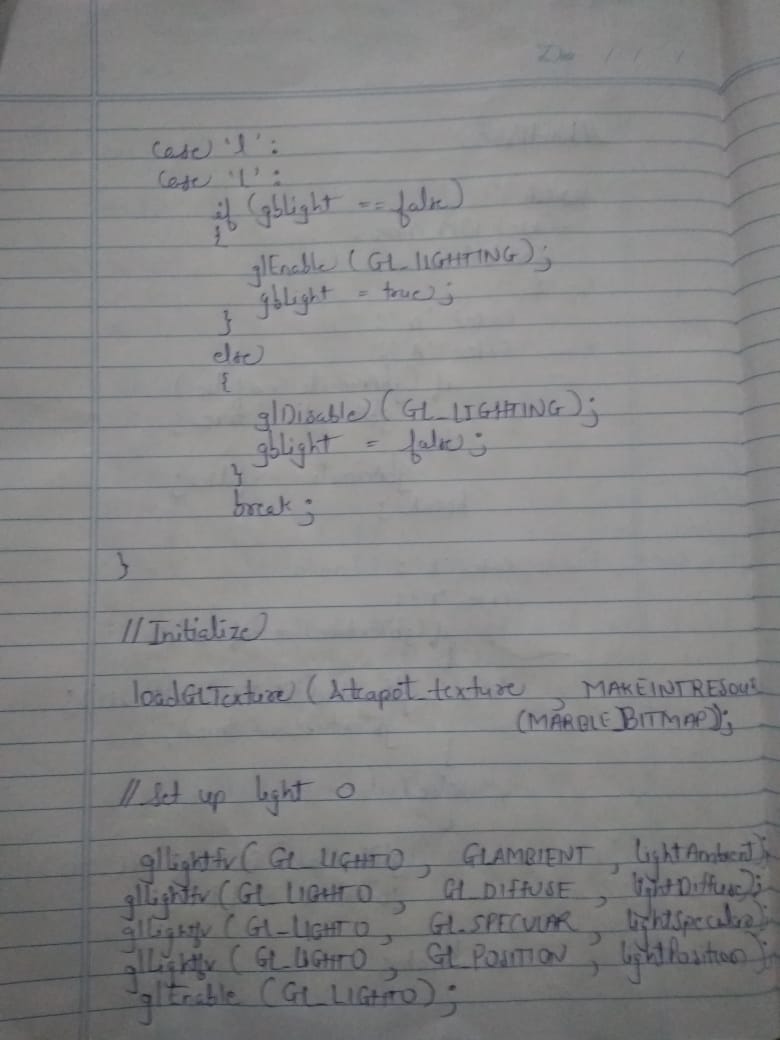 case 'l':
case 'L':
if (gbLight == false)
{
glEnable (GL_LIGHTING);
gbLight = true;
}
else
{
glDisable (GL_LIGHTING);
gbLight = false;
}
break;
}
// Initialize
loadGLTexture (&teapot_texture, MAKEINTRESOU
(MARBLE_BITMAP));
// set up light 0
glLightfv (GL_LIGHT0, GL_AMBIENT, lightAmbient);
glLightfv (GL_LIGHT0, GL_DIFFUSE, lightDiffuse);
glLightfv (GL_LIGHT0, GL_SPECULAR, lightSpecular);
glLightfv (GL_LIGHT0, GL_POSITION, lightPosition);
glEnable (GL_LIGHT0);